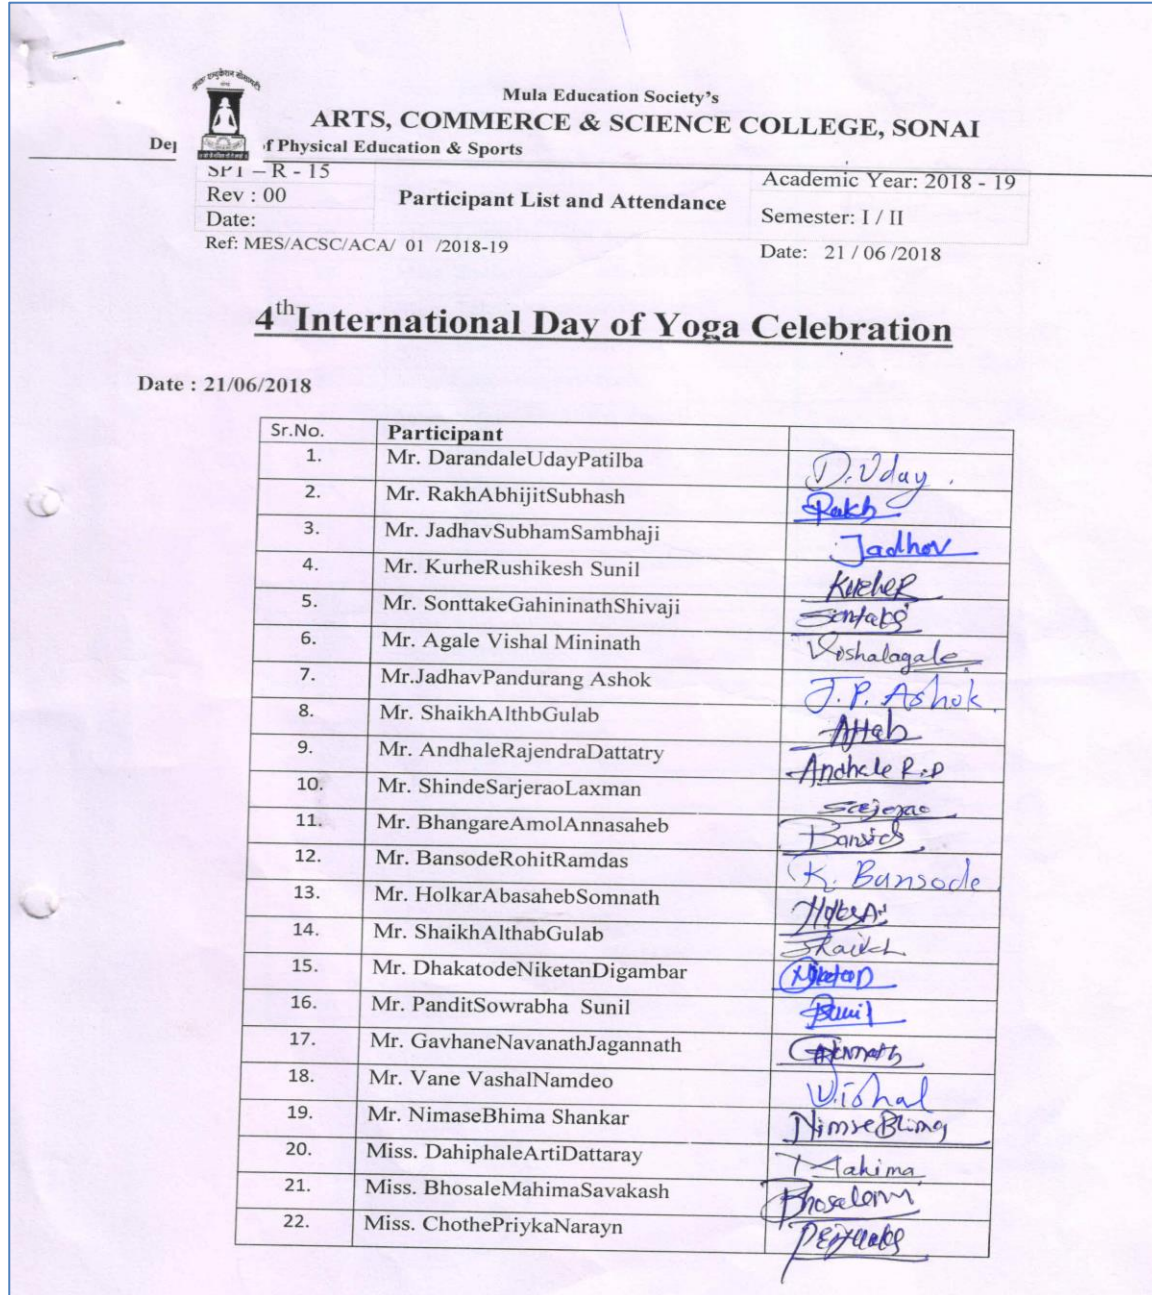 Mula Education Society's
ARTS, COMMERCE & SCIENCE COLLEGE, SONAI
Dep f Physical Education & Sports
SPT – R - 15
Rev : 00
Date:
Participant List and Attendance
Academic Year: 2018 - 19
Semester: I / II
Ref: MES/ACSC/ACA/ 01 /2018-19
Date: 21 / 06 /2018
4th International Day of Yoga Celebration
Date : 21/06/2018
Sr.No. Participant
1. Mr. DarandaleUdayPatilba D. Uday.
2. Mr. RakhAbhijitSubhash Rakh
3. Mr. JadhavSubhamSambhaji Jadhov
4. Mr. KurheRushikesh Sunil
5. Mr. SonttakeGahininathShivaji
6. Mr. Agale Vishal Mininath Vishalagale
7. Mr.JadhavPandurang Ashok J. P. Ashok
8. Mr. ShaikhAlthbGulab
9. Mr. AndhaleRajendraDattatry Andhale R.D
10. Mr. ShindeSarjeraoLaxman
11. Mr. BhangareAmolAnnasaheb
12. Mr. BansodeRohitRamdas K. Bansode
13. Mr. HolkarAbasahebSomnath
14. Mr. ShaikhAlthabGulab Shaikh
15. Mr. DhakatodeNiketanDigambar
16. Mr. PanditSowrabha Sunil
17. Mr. GavhaneNavanathJagannath
18. Mr. Vane VashalNamdeo Vishal
19. Mr. NimaseBhima Shankar
20. Miss. DahiphaleArtiDattaray Mahima
21. Miss. BhosaleMahimaSavakash
22. Miss. ChothePriykaNarayn